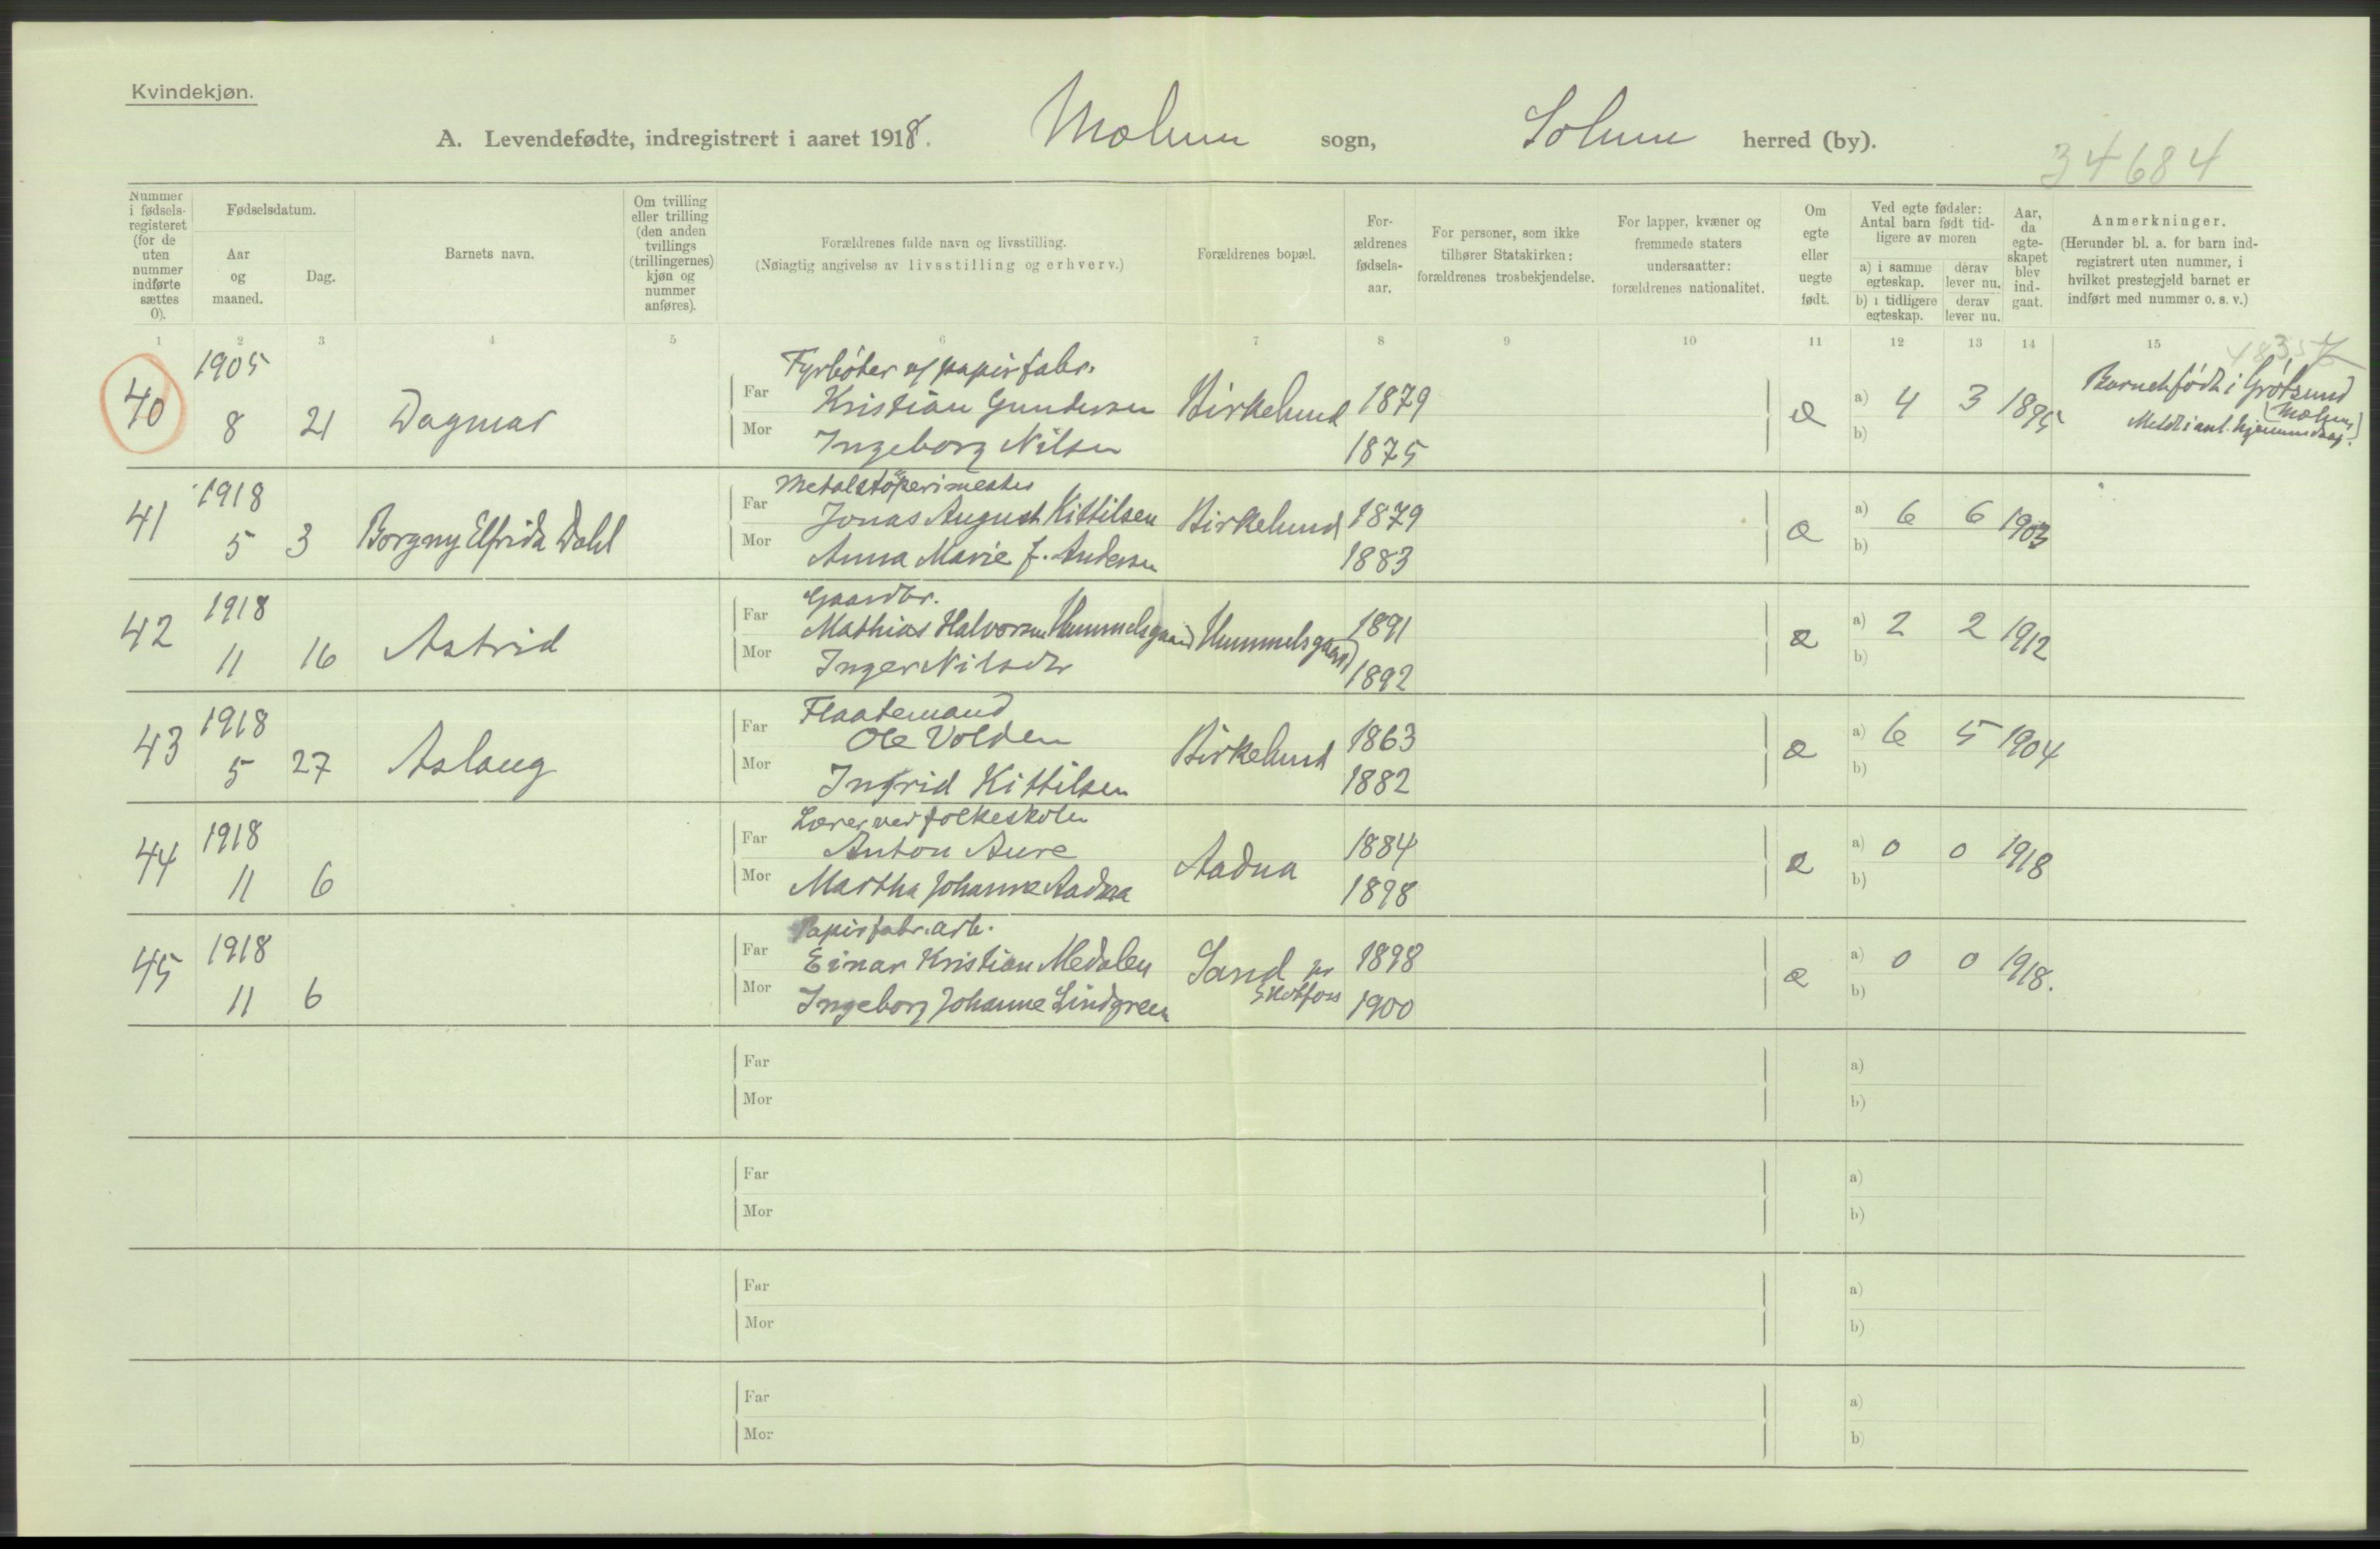 Kvindekjøn.
A. Levendefødte, indregistrert i aaret 1918. Mælum sogn, Solum herred (by).
34684
Nummer i fødsels-registeret (for de uten nummer indførte sættes 0).
Fødselsdatum.
Aar og maaned.
Dag.
Barnets navn.
Om tvilling eller trilling (den anden tvillings (trillingernes) kjøn og nummer anføres).
Forældrenes fulde navn og livsstilling.
(Nøiagtig angivelse av livsstilling og erhverv.)
Forældrenes bopæl.
For-ældrenes fødsels-aar.
For personer, som ikke tilhører Statskirken: forældrenes trosbekjendelse.
For lapper, kvæner og fremmede staters undersaatter: forældrenes nationalitet.
Om egte eller uegte født.
Ved egte fødsler: Antal barn født tid-ligere av moren
a) i samme egteskap. derav lever nu.
b) i tidligere egteskap. derav lever nu.
Aar, da egte-skapet blev ind-gaat.
Anmerkninger.
(Herunder bl. a. for barn ind-registrert uten nummer, i hvilket prestegjeld barnet er indført med nummer o. s. v.)
1 2 3 4 5 6 7 8 9 10 11 12 13 14 15
40 1905 8 21 Dagmar
Fyrbøter v/ papirfabr.
Far Kristian Gundersen Birkelund 1879
Mor Ingeborg Nilsen 1875
e a) 4 3 1895 b)
Barnet født i Grötsund
(Mælum)
41 1918 5 3 Borgny Elfrida Dahl
Metalstøperimester
Far Jonas August Kittilsen Birkelund 1879
Mor Anna Marie J. Andersen 1883
e a) 6 6 1903 b)
42 1918 11 16 Astrid
Gaardbr.
Far Mathias Halvorsen Hummelsgaard Hummelsgaard 1891
Mor Inger Nilsdtr 1892
e a) 2 2 1912 b)
43 1918 5 27 Aslaug
Flaatemand
Far Ole Volden Birkelund 1863
Mor Ingrid Kittilsen 1882
e a) 6 5 1904 b)
44 1918 11 6
Lærer ved folkeskolen
Far Anton Aure Aadna 1884
Mor Martha Johanne Aadna 1898
e a) 0 0 1918 b)
45 1918 11 6
Papirfabr. arb.
Far Einar Kristian Medalen Sand pr Skotfoss 1898
Mor Ingeborg Johanne Lindgreen 1900
e a) 0 0 1918. b)
Far a)
Mor b)
Far a)
Mor b)
Far a)
Mor b)
Far a)
Mor b)